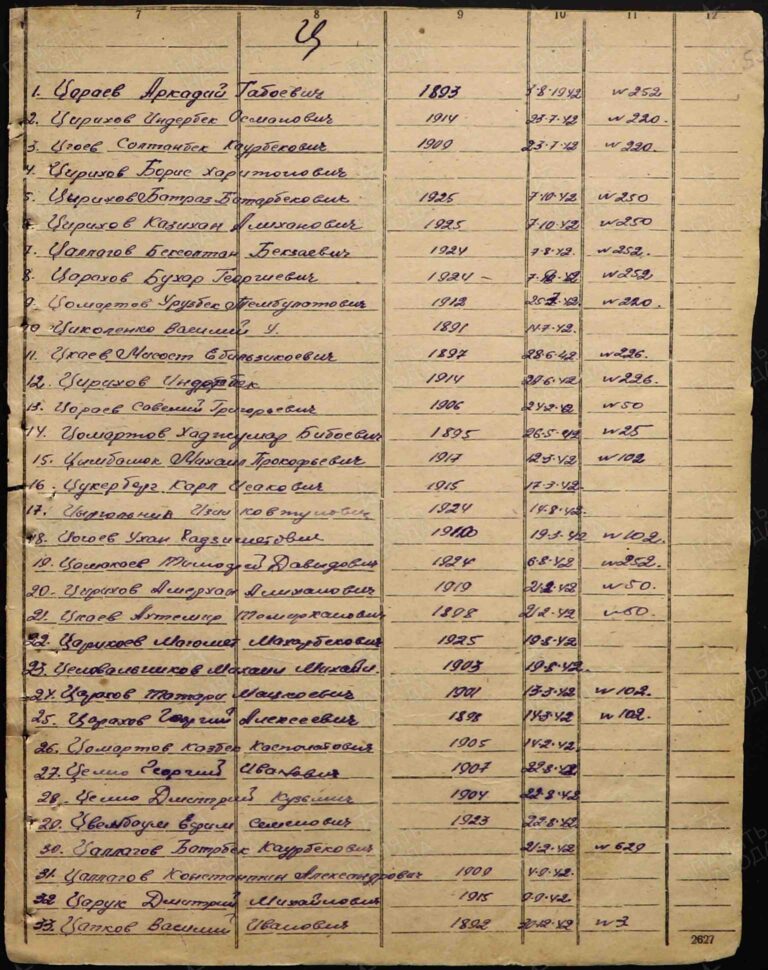 7 8 9 10 11 12
Ц
1. Цораев Аркадий Габоевич 1893 3-8-1942 №252
2. Цирихов Индербек Османович 1914 23-7-42 №220.
3. Цгоев Солтанбек Каурбекович 1909 23-7-42 №220.
4. Цирихов Борис Харитонович
5. Цырихов Батраз Батарбекович 1925 7-10-42 №250
6. Цирихов Казихан Алиханович 1925 7-10-42 №250
7. Цаллагов Бексолтан Бекзаевич 1924 7-8-42. №252.
8. Царахов Бухар Георгиевич 1924 №252
9. Цомартов Урузбек Тембулатович 1912 №220.
10 Циколенко Василий У. 1891 11-7-42.
11. Цкаев 1897 28-6-42 №226.
12. Цирихов Индербек 1914 28-6-42 №226.
13. Цораев Савелий Григорьевич 1906 24-2-42 №50
14. Цомартов Хаджумар Бибоевич 1895 26-5-42 №25
15. Михаил Прокофьевич 1917 12-3-42 №102
16. Цукерберг Карл Исакович 1915 17-3-42.
17. 1924 14-8-42.
18. Цогоев 19-3-42 №102.
19. Тимофей Давидович 1924 6-8-42 №252.
20. Цирихов Амерхан Алиханович 1919 21-2-42 №50.
21. Цкаев Ахтемир Темирханович 1898 21-2-42 №50.
22. Царикаев Магомет Махарбекович 1925 19-8-42
23. Целовальников Михаил Михайл. 1903 19-8-42.
24. Царахов Татари 1901 13-3-42 №102.
25. Царахов Георгий Алексеевич 1898 14-3-42 №102.
26. Цомартов Казбек 1905 14-2-42.
27. Целио Георгий Иванович 1907 22-8-42
28. Целио Дмитрий Кузьмич 1904 22-8-42
29. Цвембаум Ефим Семенович 1923 22-8-42.
30. Цаллагов Батрбек Каурбекович 21-2-42 №629
31. Цаллагов Константин Александрович 1909 4-9-42.
32 Царук Дмитрий Михайлович 1915 9-9-42.
33. Цапков Василий Иванович 1892 30-12-42 №3
2627